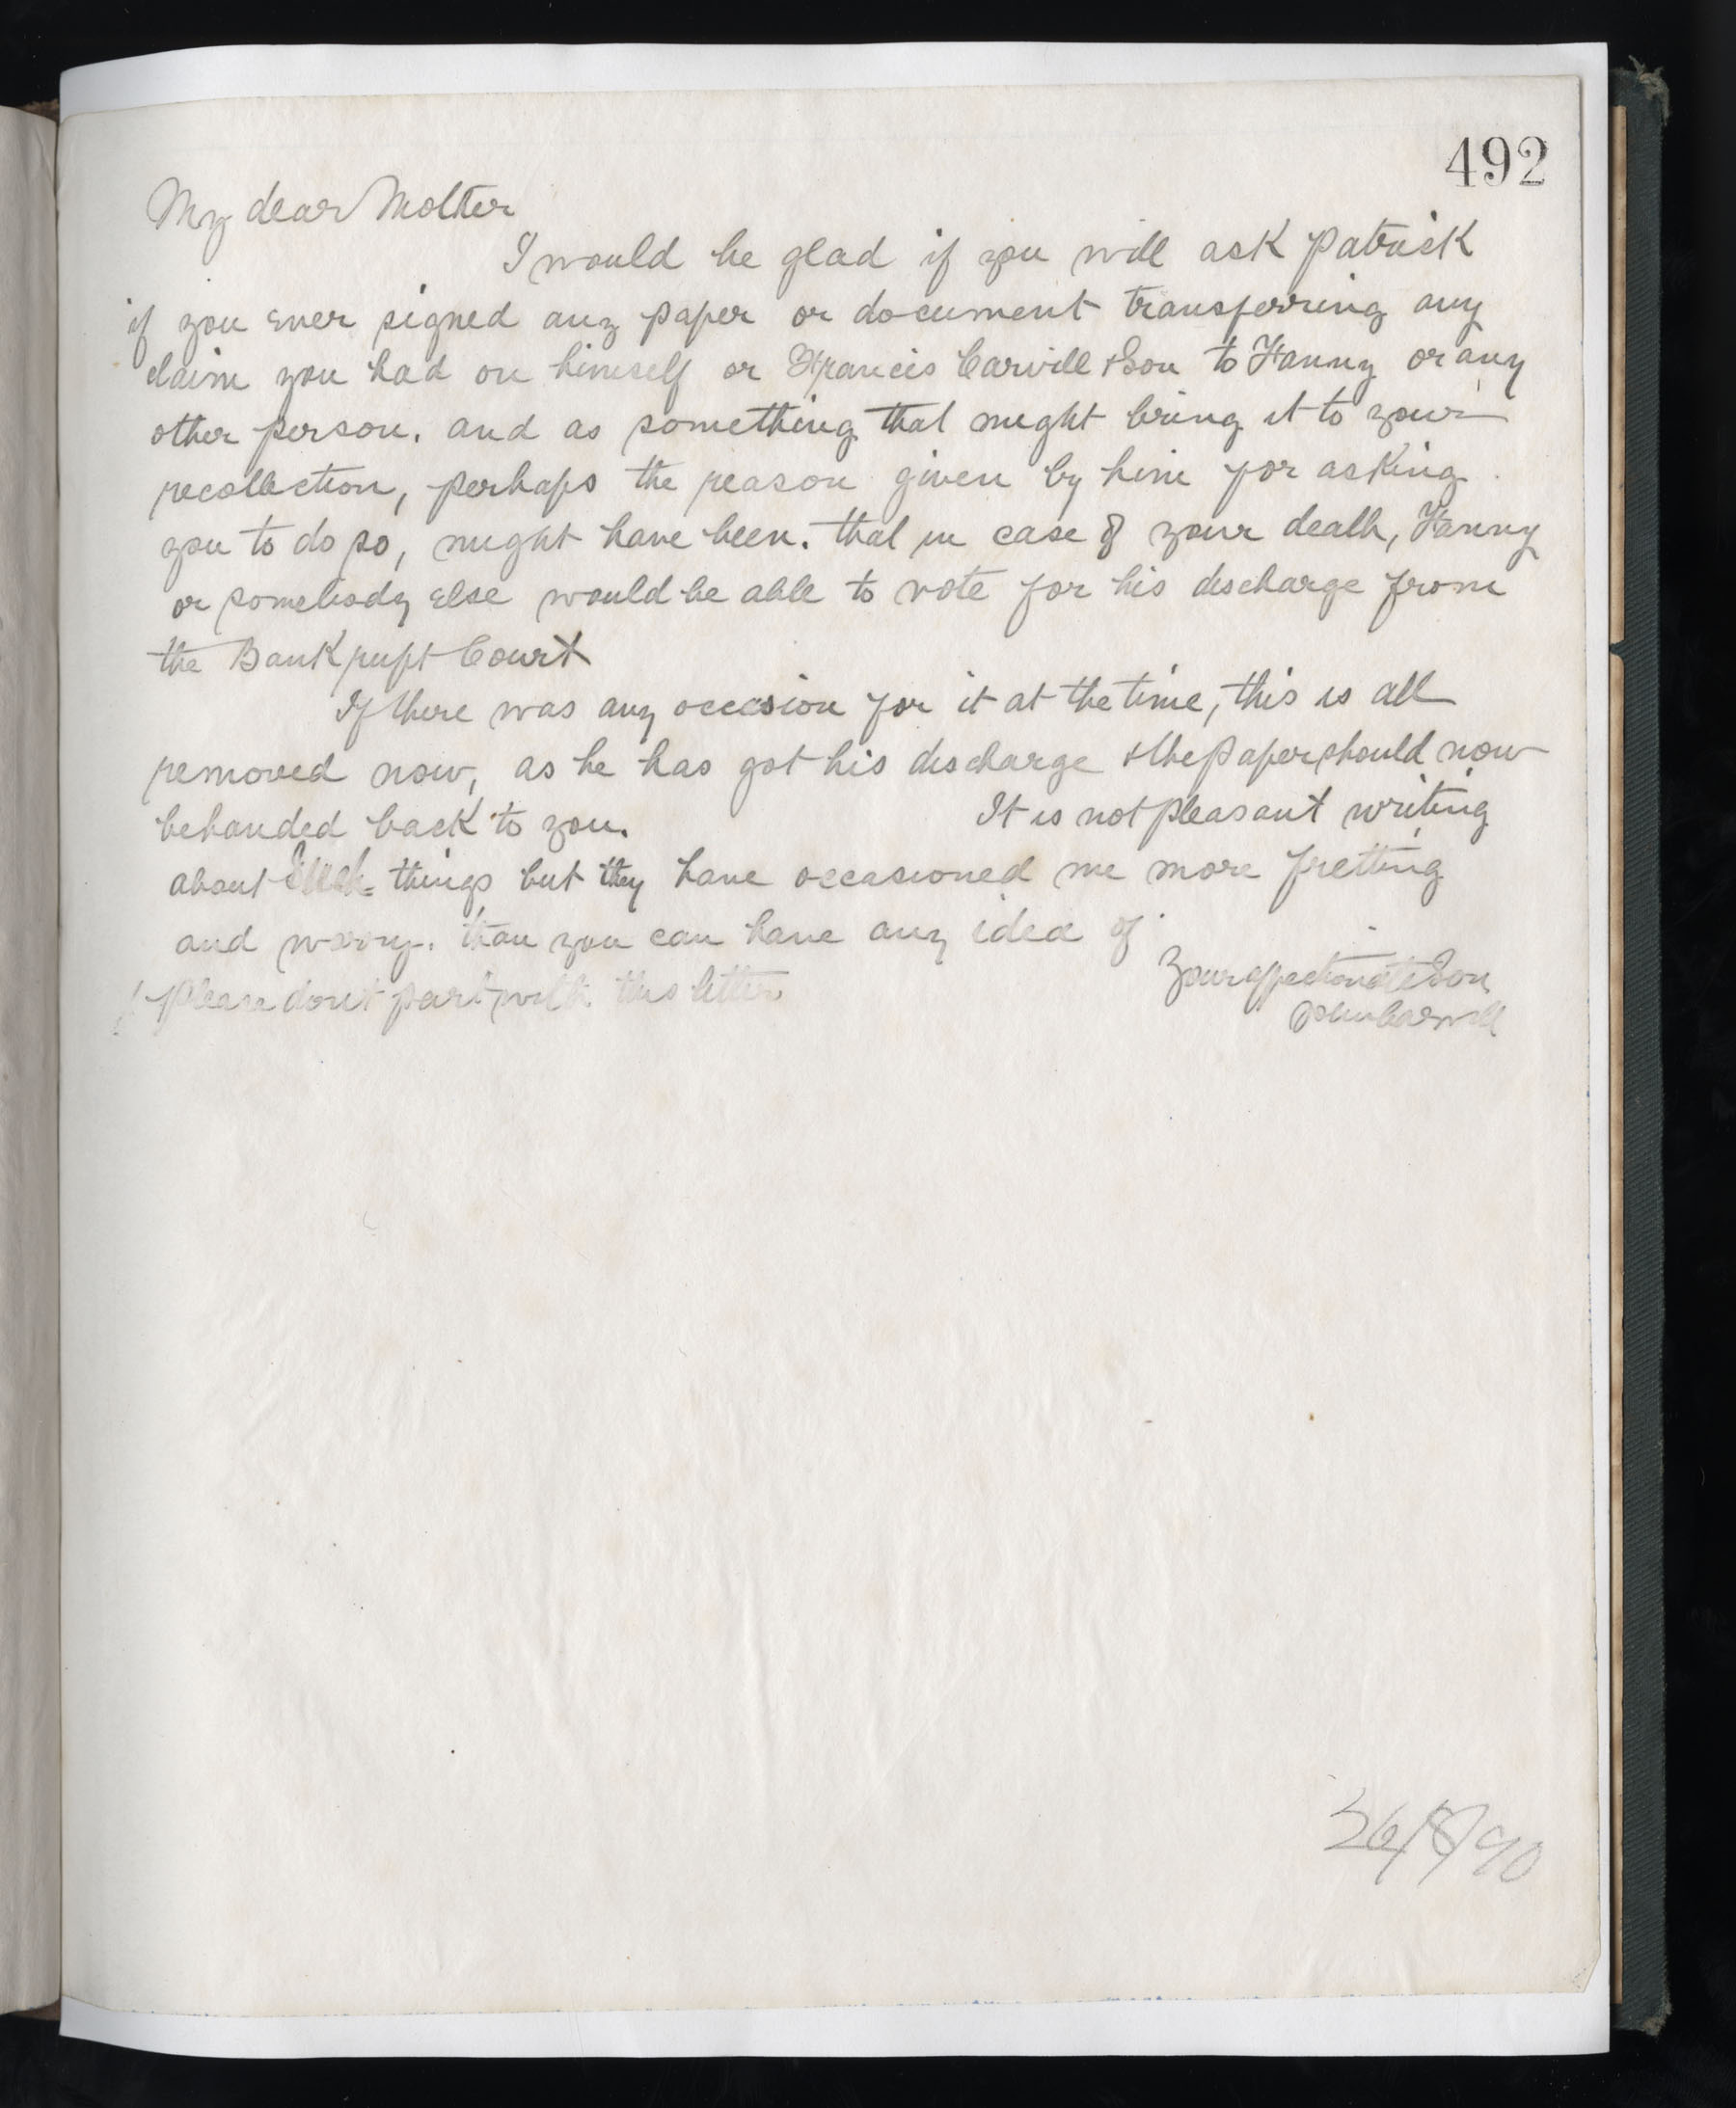 492
My dear Mother
I would be glad if you will ask Patrick
if you ever signed any paper or document transferring any
claim you had on himself or Francis Carvill & Son to Fanny or any
other person. and as something that might bring it to your
recollection, perhaps the reason given by him for asking
you to do so, might have been. that in case of your death, Fanny
or somebody else would be able to vote for his discharge from
the Bankrupt Court
If there was any occasion for it at the time, this is all
removed now, as he has got his discharge & the paper should now
be handed back to you. It is not pleasant writing
about such things but they have occasioned me more fretting
and worry. than you can have any idea of
Your affectionate Son
Please dont part with this letter
John Carvill
26/8/90